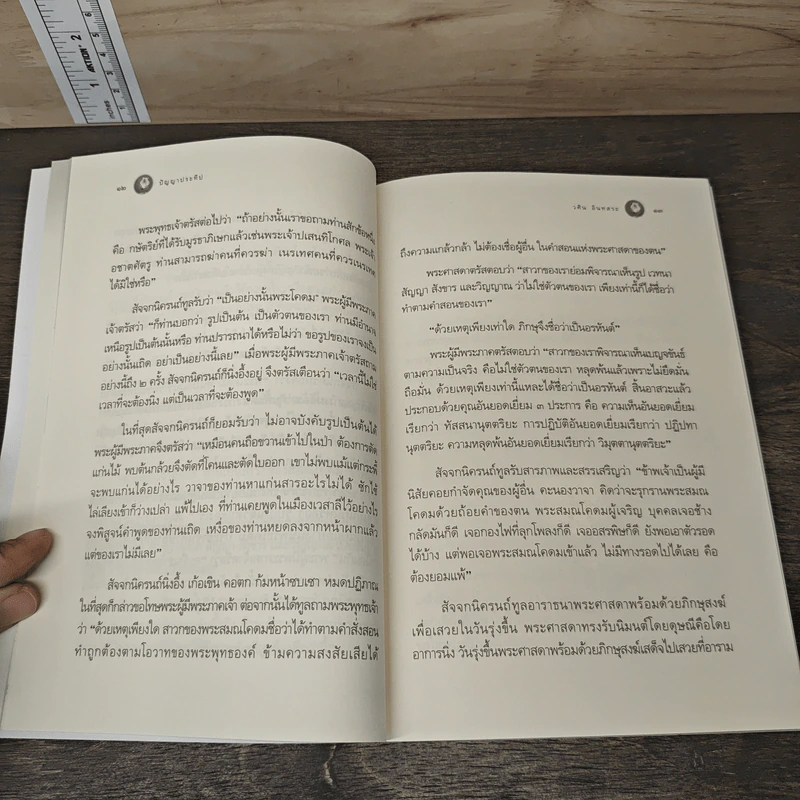 ๑๒ ปัญญาประทีป
พระพุทธเจ้าตรัสต่อไปว่า “ถ้าอย่างนั้นเราขอถามท่านสักข้อหนึ่ง
คือ กษัตริย์ที่ได้รับมูรธาภิเษกแล้วเช่นพระเจ้าปเสนทิโกศล พระเจ้า
อชาตศัตรู ท่านสามารถฆ่าคนที่ควรฆ่า เนรเทศคนที่ควรเนรเทศ
ได้มิใช่หรือ”
สัจจกนิครนถ์ทูลรับว่า “เป็นอย่างนั้นพระโคดม” พระผู้มีพระภาค
เจ้าตรัสว่า “ก็ท่านบอกว่า รูปเป็นต้น เป็นตัวตนของเรา ท่านมีอำนาจ
เหนือรูปเป็นต้นนั้นหรือ ท่านปรารถนาได้หรือไม่ว่า ขอรูปของเราจงเป็น
อย่างนั้นเถิด อย่าเป็นอย่างนี้เลย” เมื่อพระผู้มีพระภาคเจ้าตรัสถาม
อย่างนี้ถึง ๒ ครั้ง สัจจกนิครนถ์ก็นิ่งอึ้งอยู่ จึงตรัสเตือนว่า “เวลานี้ไม่ใช่
เวลาที่จะต้องนิ่ง แต่เป็นเวลาที่จะต้องพูด”
ในที่สุดสัจจกนิครนถ์ก็ยอมรับว่า ไม่อาจบังคับรูปเป็นต้นได้
พระผู้มีพระภาคจึงตรัสว่า “เหมือนคนถือขวานเข้าไปในป่า ต้องการตัด
แก่นไม้ พบต้นกล้วยจึงตัดที่โคนและตัดใบออก เขาไม่พบแม้แต่กระพี้
จะพบแก่นได้อย่างไร วาจาของท่านหาแก่นสารอะไรไม่ได้ ซักไช้
ไล่เลียงเข้าก็ว่างเปล่า แพ้ไปเอง ที่ท่านเคยพูดในเมืองเวสาลีไว้อย่างไร
จงพิสูจน์คำพูดของท่านเถิด เหงื่อของท่านหยดลงจากหน้าผากแล้ว
แต่ของเราไม่มีเลย”
สัจจกนิครนถ์นิ่งอึ้ง เก้อเขิน คอตก ก้มหน้าซบเซา หมดปฏิภาณ
ในที่สุดก็กล่าวขอโทษพระผู้มีพระภาคเจ้า ต่อจากนั้นได้ทูลถามพระพุทธเจ้า
ว่า “ด้วยเหตุเพียงใด สาวกของพระสมณโคดมชื่อว่าได้ทำตามคำสั่งสอน
ทำถูกต้องตามโอวาทของพระพุทธองค์ ข้ามความสงสัยเสียได้
วศิน อินทสระ ๑๓
ถึงความแกล้วกล้า ไม่ต้องเชื่อผู้อื่น ในคำสอนแห่งพระศาสดาของตน”
พระศาสดาตรัสตอบว่า “สาวกของเราย่อมพิจารณาเห็นรูป เวทนา
สัญญา สังขาร และวิญญาณ ว่าไม่ใช่ตัวตนของเรา เพียงเท่านี้ก็ได้ชื่อว่า
ทำตามคำสอนของเรา”
“ด้วยเหตุเพียงเท่าใด ภิกษุจึงชื่อว่าเป็นอรหันต์”
พระผู้มีพระภาคตรัสตอบว่า “สาวกของเราพิจารณาเห็นเบญจขันธ์
ตามความเป็นจริง คือไม่ใช่ตัวตนของเรา หลุดพ้นแล้วเพราะไม่ยึดมั่น
ถือมั่น ด้วยเหตุเพียงเท่านี้แหละได้ชื่อว่าเป็นอรหันต์ สิ้นอาสวะแล้ว
ประกอบด้วยคุณอันยอดเยี่ยม ๓ ประการ คือ ความเห็นอันยอดเยี่ยม
เรียกว่า ทัสสนานุตตริยะ การปฏิบัติอันยอดเยี่ยมเรียกว่า ปฏิปทา
นุตตริยะ ความหลุดพ้นอันยอดเยี่ยมเรียกว่า วิมุตตานุตตริยะ”
สัจจกนิครนถ์ทูลรับสารภาพและสรรเสริญว่า “ข้าพเจ้าเป็นผู้มี
นิสัยคอยกำจัดคุณของผู้อื่น คะนองวาจา คิดว่าจะรุกรานพระสมณ
โคดมด้วยถ้อยคำของตน พระสมณโคดมผู้เจริญ บุคคลเจอช้าง
กลัดมันก็ดี เจอกองไฟที่ลุกโพลงก็ดี เจออสรพิษก็ดี ยังพอเอาตัวรอด
ได้บ้าง แต่พอเจอพระสมณโคดมเข้าแล้ว ไม่มีทางรอดไปได้เลย คือ
ต้องยอมแพ้”
สัจจกนิครนถ์ทูลอาราธนาพระศาสดาพร้อมด้วยภิกษุสงฆ์
เพื่อเสวยในวันรุ่งขึ้น พระศาสดาทรงรับนิมนต์โดยดุษณีคือโดย
อาการนิ่ง วันรุ่งขึ้นพระศาสดาพร้อมด้วยภิกษุสงฆ์เสด็จไปเสวยที่อาราม